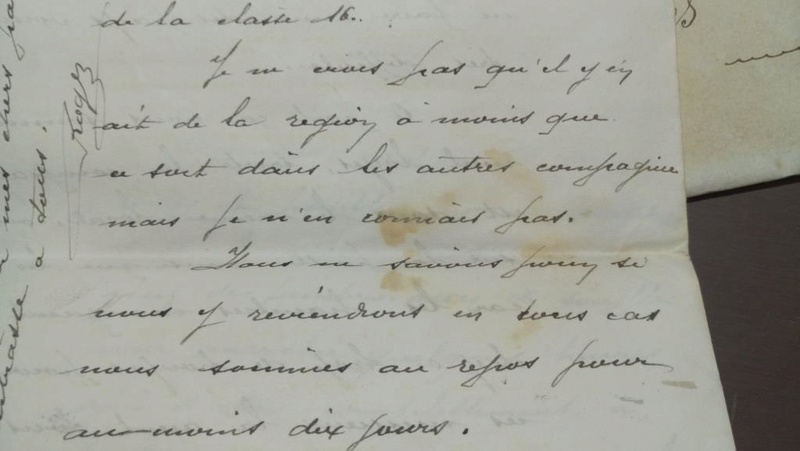 de la classe 16..
Je ne crois pas qu'il y en
ait de la region à moins que
ce soit dans les autres compagnie
mais je n'en connais pas.
Nous ne savons si
nous y reviendrons en tous cas
nous sommes au repos pour
au-moins dix jours.
mes chers
embrasse à tous.
Roger